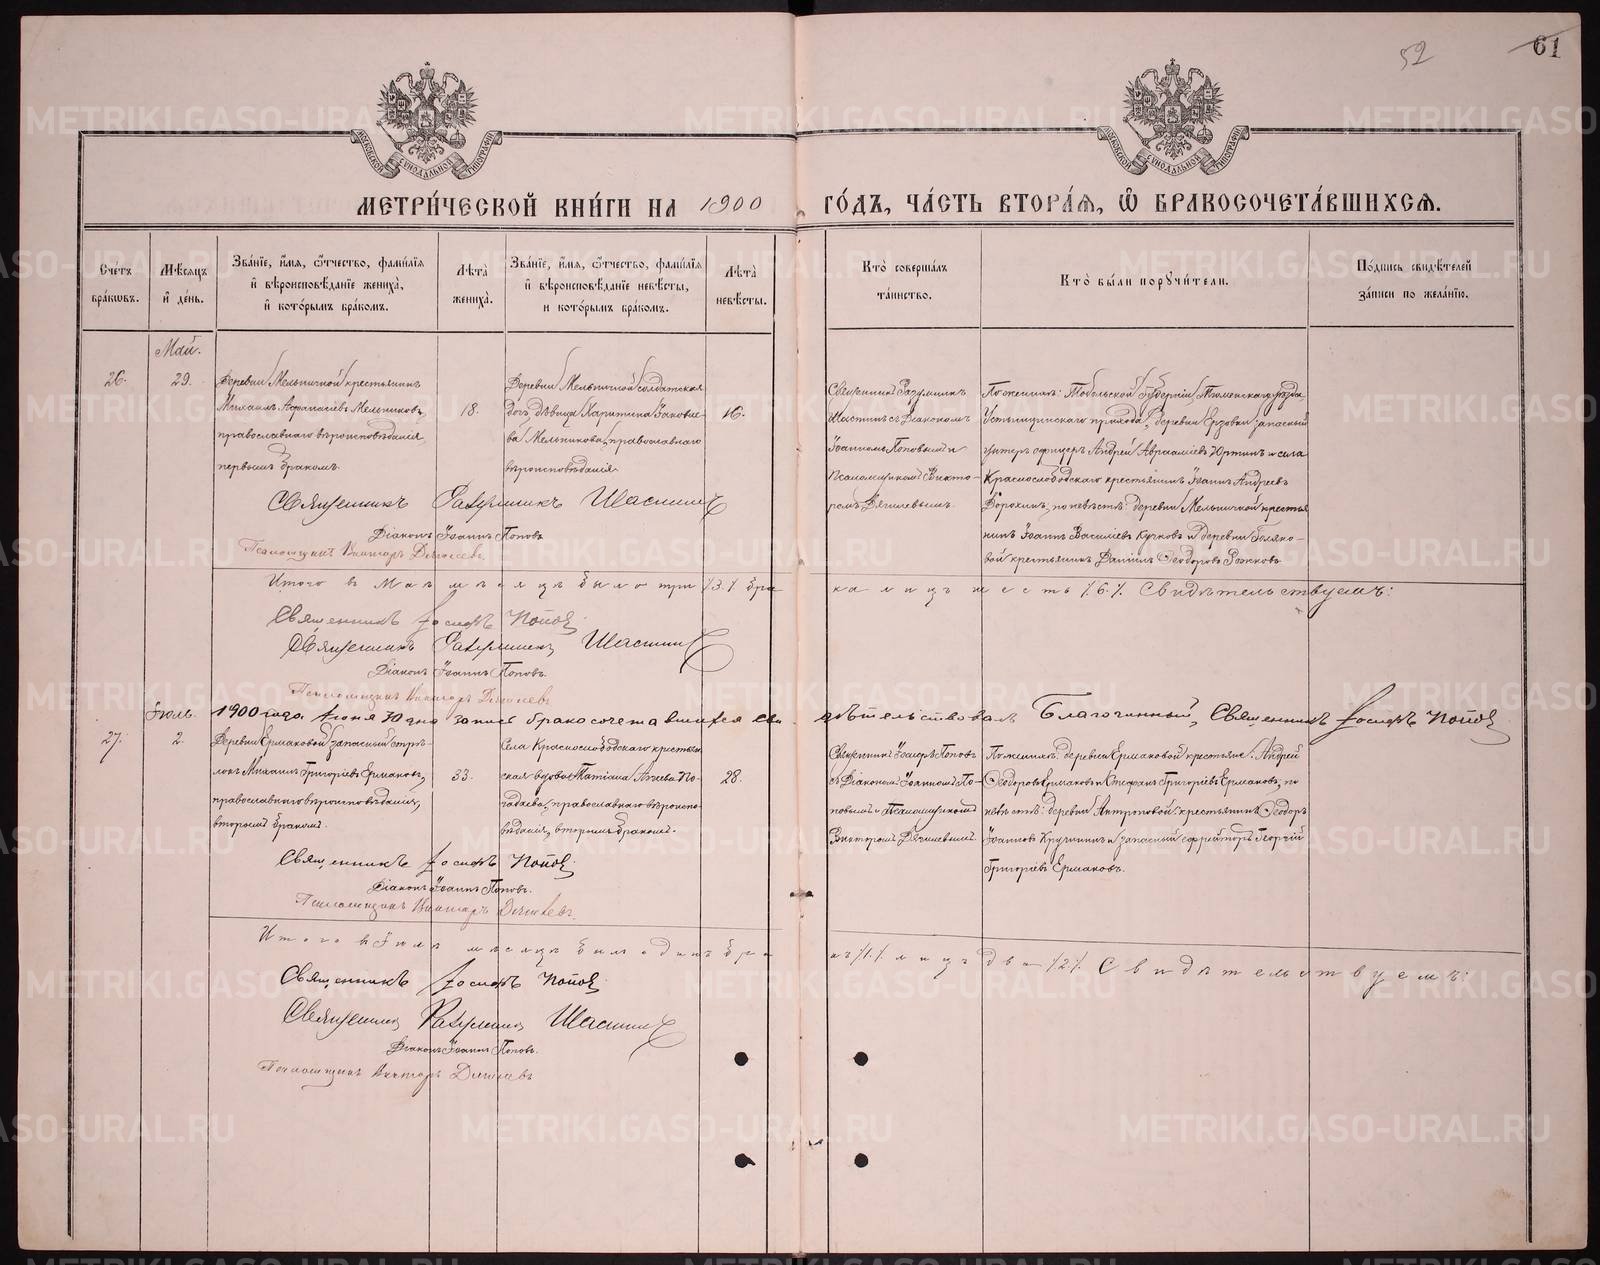 52
61
МОСКОВСКОЙ СѴНОДАЛЬНОЙ ТИПОГРАФІИ
МОСКОВСКОЙ СѴНОДАЛЬНОЙ ТИПОГРАФІИ
МЕТРИ́ЧЕСКОЙ КНИ́ГИ НА 1900 ГО́ДЪ, ЧА́СТЬ ВТОРА́Я, Ѽ БРАКОСОЧЕТА́ВШИХСЯ.
Сче́тъ бра́кωвъ.
Мѣ́сяцъ и҆ де́нь.
Зва́нїе, и҆́мя, ѻ҆́тчество, фами́лїя и҆ вѣроисповѣ́данїе жениха̀, и҆ кото́рымъ бра́комъ.
Лѣ́та̀ жениха̀.
Зва́нїе, и҆́мя, ѻ҆́тчество, фами́лїя и҆ вѣроисповѣ́данїе невѣ́сты, и҆ кото́рымъ бра́комъ.
Лѣ́та̀ невѣ́сты.
Кто̀ соверша́лъ та́инство.
Кто̀ бы́ли порꙋчи́тели.
По́дпись свидѣ́телей за́писи по жела́нїю.
Май.
26.
29.
Деревни Мельничной крестьянинъ
Михаилъ Афанасіевъ Мельниковъ,
православнаго вѣроисповѣданія,
первымъ бракомъ.
18.
Деревни Мельничной солдатская
дочь дѣвица Харитина Іаковле-
ва Мельникова, православнаго
вѣроисповѣданія.
16.
Священникъ Разумникъ
Шастинъ съ Діакономъ
Іоанномъ Поповымъ и
Псаломщикомъ Викто-
ромъ Дягилевымъ.
По женихѣ: Тобольской Губерніи, Тюменскаго уѣзда,
прихода, деревни Ерзовки запасный
унтеръ офицеръ Андрей Авраамiевъ Юртинъ и села
Краснослободскаго крестьянинъ Іоаннъ Андреевъ
по невѣстѣ: деревни Мельничной крестья
нинъ Іоаннъ Васильевъ и деревни
вой крестьянинъ Даніилъ Ѳеодоровъ
Священникъ Разумникъ Шастинъ
Діаконъ Іоаннъ Поповъ
Псаломщикъ Викторъ Дягилевъ.
Итого въ Маѣ мѣсяцѣ было три /3./ бра
ка лицъ шесть /6./ Свидѣтельствуемъ:
Священникъ Іосифъ Поповъ
Священникъ Разумникъ Шастинъ
Діаконъ Іоаннъ Поповъ.
Псаломщикъ Викторъ Дягилевъ
1900 года Іюня 30 дня запись бракосочетавшихся сви
дѣтельствовалъ Благочинный, Священникъ Іосифъ Поповъ
Іюль.
27.
2.
Деревни Ермаковой запасный стрѣ-
локъ Михаилъ Григоріевъ Ермаковъ,
православнаго вѣроисповѣданія,
вторымъ бракомъ.
33.
Села Краснослободскаго крестьян
ская вдова Татіана
православнаго вѣроиспо-
вѣданія, вторымъ бракомъ.
28.
Священникъ Іосифъ Поповъ
съ Діакономъ Іоанномъ По-
повымъ и Псаломщикомъ
Викторомъ Дягилевымъ.
По женихѣ: деревни Ермаковой крестьяне: Андрей
Ѳеодоровъ Ермаковъ и Стефанъ Григоріевъ Ермаковъ; по
невѣстѣ: деревни Антроповой крестьянинъ Ѳеодоръ
Іоанновъ и запасный ефрейторъ Георгій
Григоріевъ Ермаковъ.
Священникъ Іосифъ Поповъ
Діаконъ Іоаннъ Поповъ.
Псаломщикъ Викторъ Дягилевъ.
Итого въ Іюлѣ мѣсяцѣ былъ одинъ бра
къ /1./ лицъ два /2./ Свидѣтельствуемъ:
Священникъ Іосифъ Поповъ
Священникъ Разумникъ Шастинъ
Діаконъ Іоаннъ Поповъ.
Псаломщикъ Викторъ Дягилевъ
METRIKI.GASO-URAL.RU